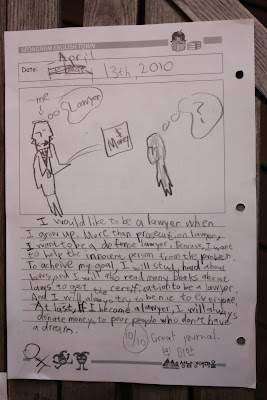 SEONGNAM ENGLISH TOWN
April
Date: 13th, 2010
me
Lawyer
?
$
Money
I would like to be a lawyer when
I grow up. More than prosecution lawyer,
I want to be a defense lawyer. Because, I want
to help the innocent person from the problem.
To acheive my goal, I will study hard about
laws, and I will also read many books about
laws to get the certification to be a lawyer.
And I will always try to be nice to everyone.
At last, if I become a lawyer, I will always
donate money to poor people who don't have
a dream.
10/10 Great journal.
성남영어마을